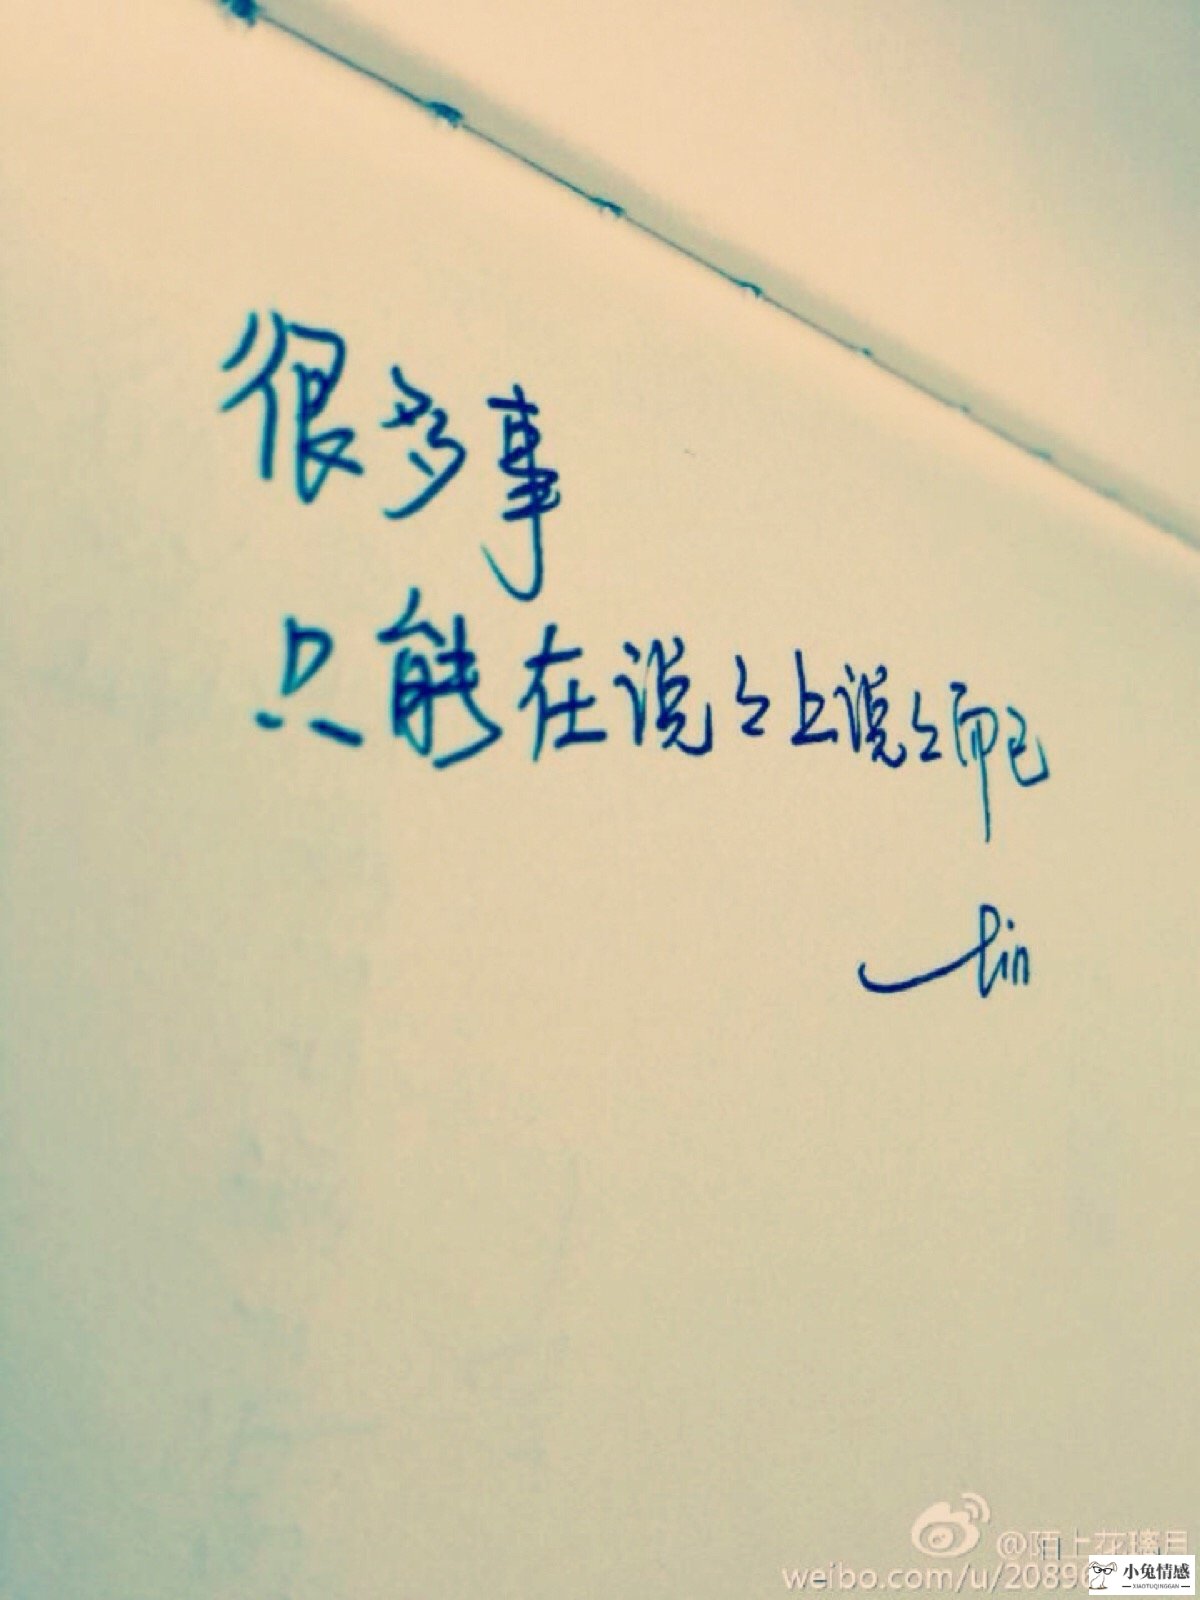 很多事
只能在说说上说说而已
lin
@陌上花璃月
weibo.com/u/20896
小兔情感
XIAOTUQINGGAN